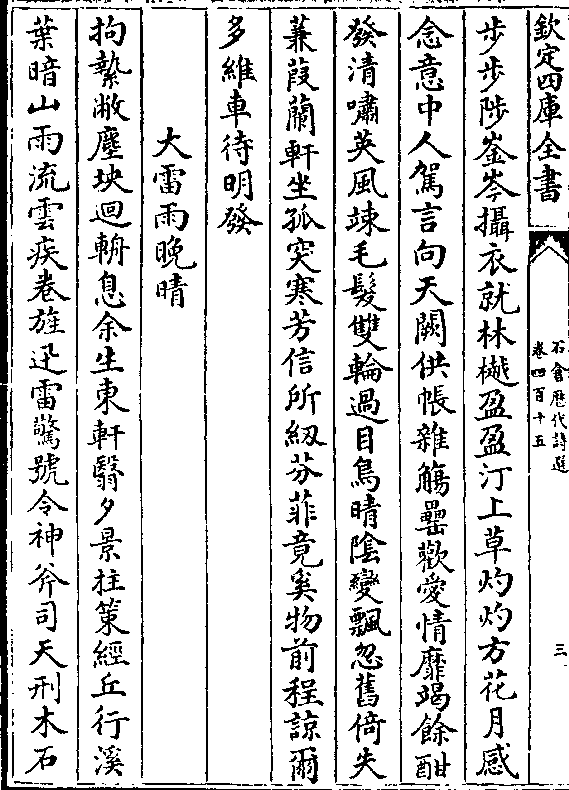 欽定四庫全書
石倉歷代詩選
卷四百十五
三
步步陟崟岑攝衣就林樾盈盈汀上草灼灼方花月感
念意中人駕言向天闕供帳雜觴罍歡愛情靡竭餘酣
發清嘯英風竦毛髮雙輪過目鳥晴陰變飄忽舊倚失
蒹葭蘭軒坐孤突寒芳信所紉芬菲竟奚物前程諒爾
多維車待明發
大雷雨晚晴
拘縶敝塵坱迴輈息余生東軒翳夕景拄策經丘行溪
葉暗山雨流雲疾卷旌迅雷驚號令神斧司天刑木石